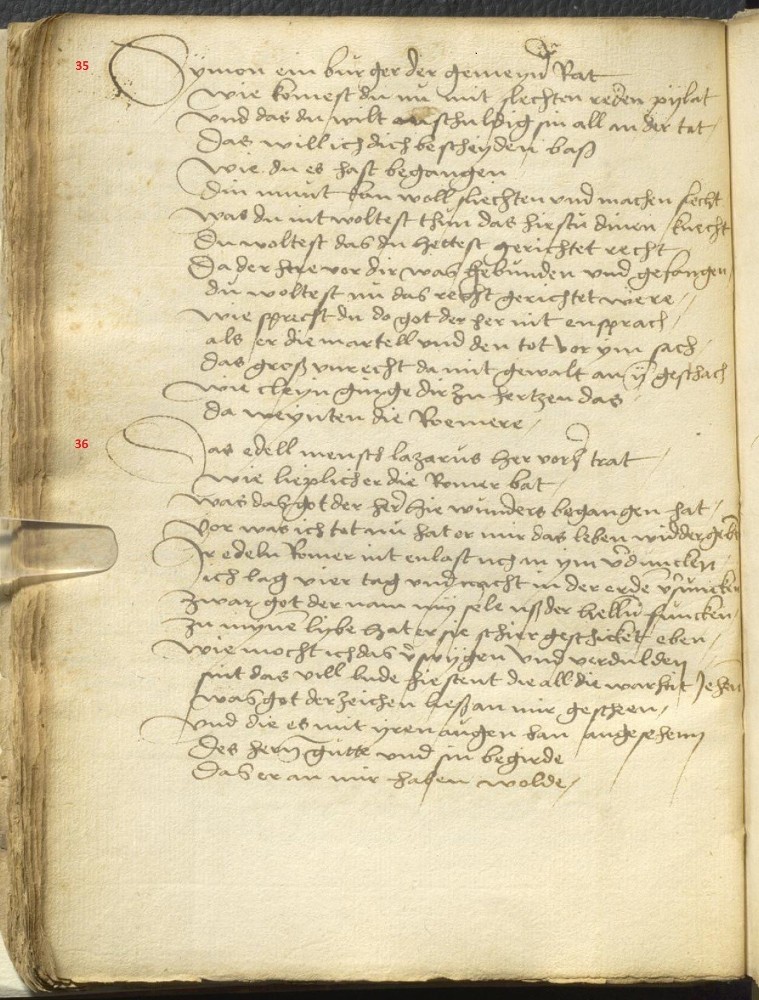 35
Symon ein burger der gemeyn Rat
wie komest du nu mit slechten reden pylat
vnd das du wilt vnschuldig sin all an der tot
Das will ich dich bescheyden baß
wie du es hast begangen
Din munt kan woll sliechten vnd machen slecht
was du nit woltest thun das hiestu dinen knecht
Du woltest das du hettest gerichtet recht
Da der herre vor dir was gebunden vnd gefangen
du woltest nu das recht gerichtet were
wie sprecst du do got der her nit ensprach
als er die martell vnd den tot vor ym sach
das groß vnrecht da mit gewalt an ym geschach
wie cleyn ginge dir zu hertzen das
da weynten die Roemere
36
Das edell mensch lazarus her vor trat
wie lieplich er die Romer bat
was daz got der her hie wunders begangen hat
vor was ich tot nu hat er mir das leben widder geben
Ir edeln Romer nit enlast uch an ym verduncken
ich lag vier tag vnd nacht in der erde versuncken
zwar got der nam myn sele uß der hellen funcken
zu mynem lybe hat er sie schier geschicket eben
wie mocht ich das verswygen vnd verdulden
sint das vill lude hie stent die all die warheit jehen
was got der zeichen ließ an mir gescheen
vnd die es mit yren augen han angesehenn
Des hern gutte vnd sin begirde
Das er an mir haben wolde